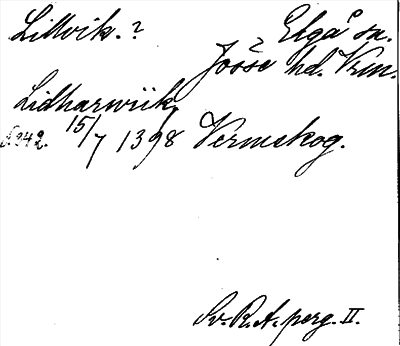 Lillvik.? Elgå sn.
Jösse hd. Vrm.
Lidharwiik,
S. 942. 15/7 1398 Vermskog.
Sv. R.A. perg. II.